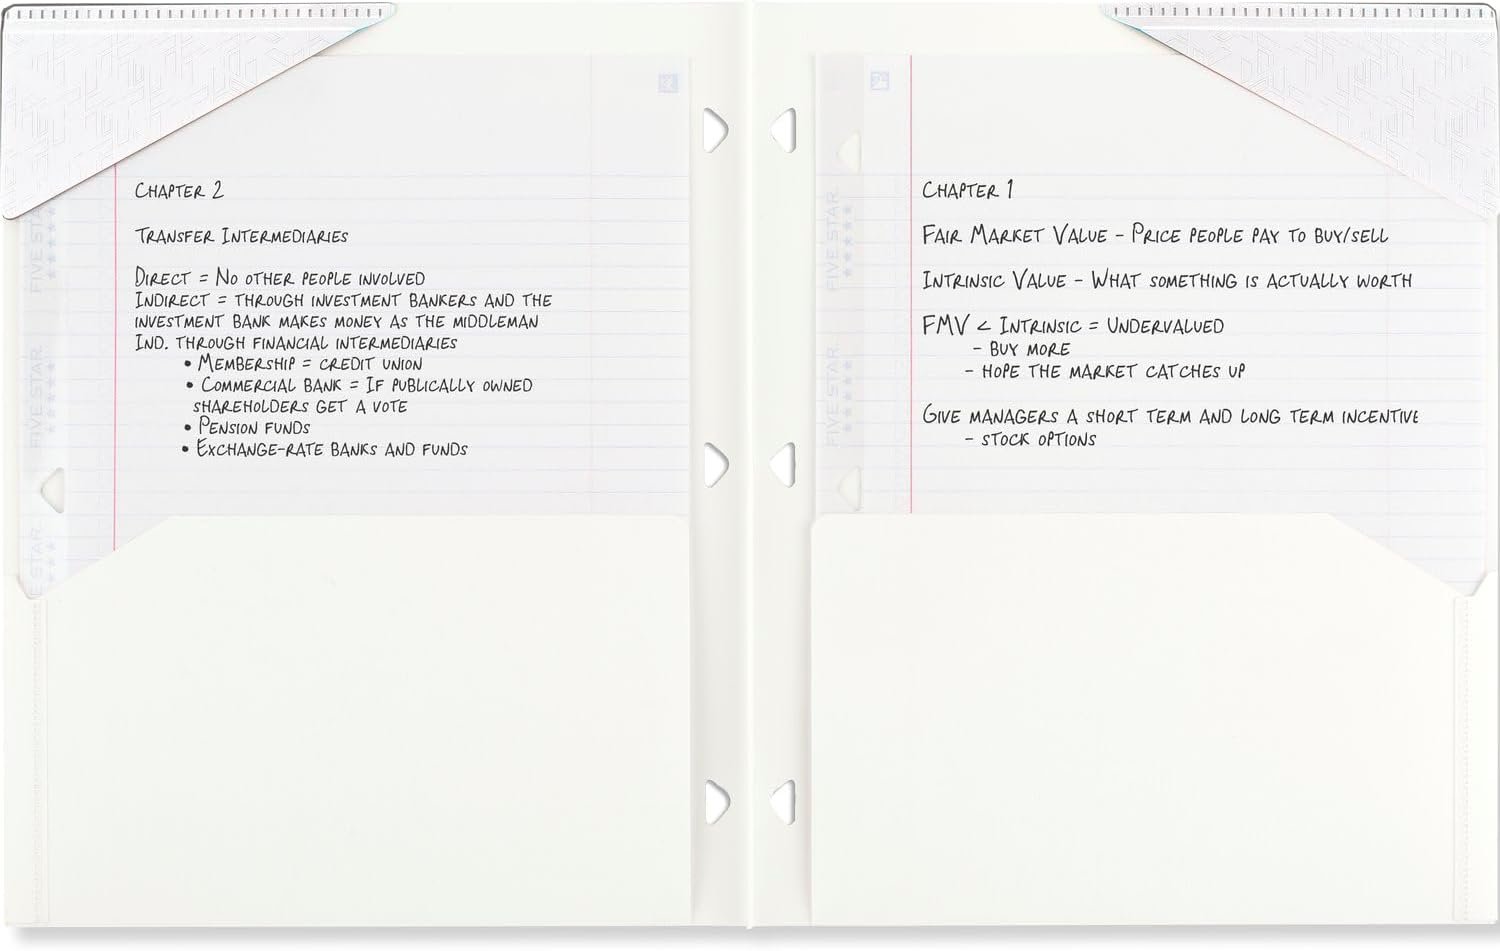 Chapter 2
Transfer Intermediaries
Direct = No other people involved
Indirect = through investment bankers and the
investment bank makes money as the middleman
Ind. through financial intermediaries
• Membership = credit union
• Commercial bank = If publically owned
shareholders get a vote
• Pension funds
• Exchange-rate banks and funds
FIVE STAR
FIVE STAR
STAR
Chapter 1
Fair Market Value - Price people pay to buy/sell
Intrinsic Value - What something is actually worth
FMV < Intrinsic = Undervalued
- buy more
- hope the market catches up
Give managers a short term and long term incentive
- stock options
FIVE STAR
FIVE STAR